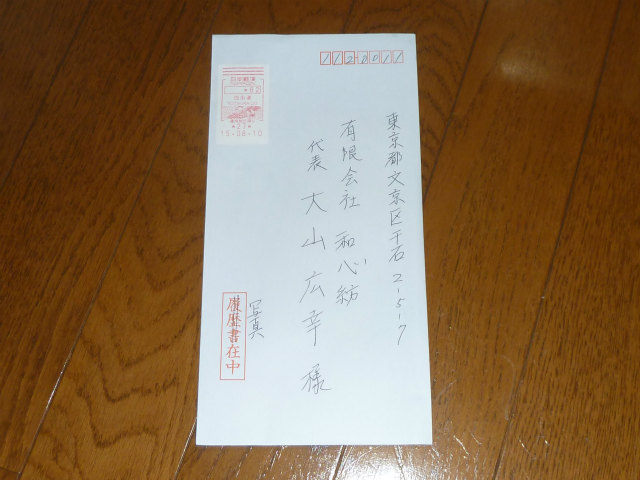 112-0011
東京都文京区千石2-5-7
有限会社 和心紡
代表 大山広幸 様
写真
履歴書在中
日本郵便
*82
15.08.10